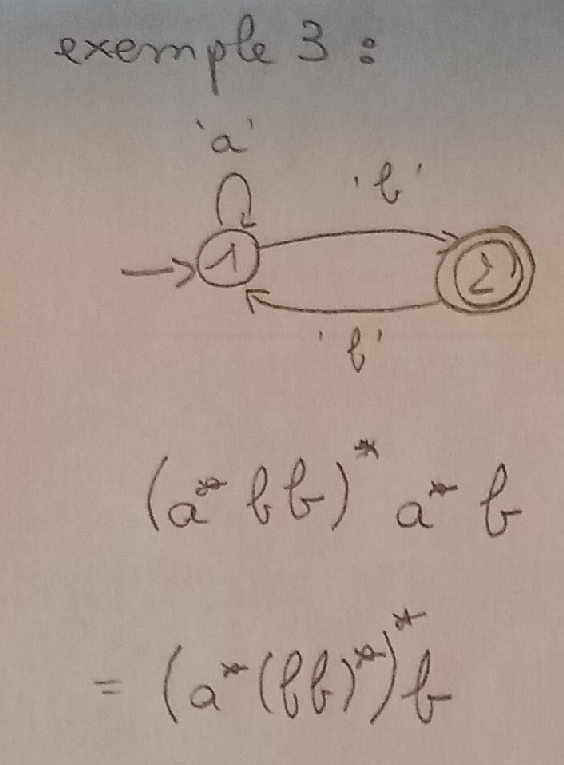 exemple 3 :
'a'
'b'
1
2
'b'
(a* b b)* a* b
= (a* (bb)*)* b